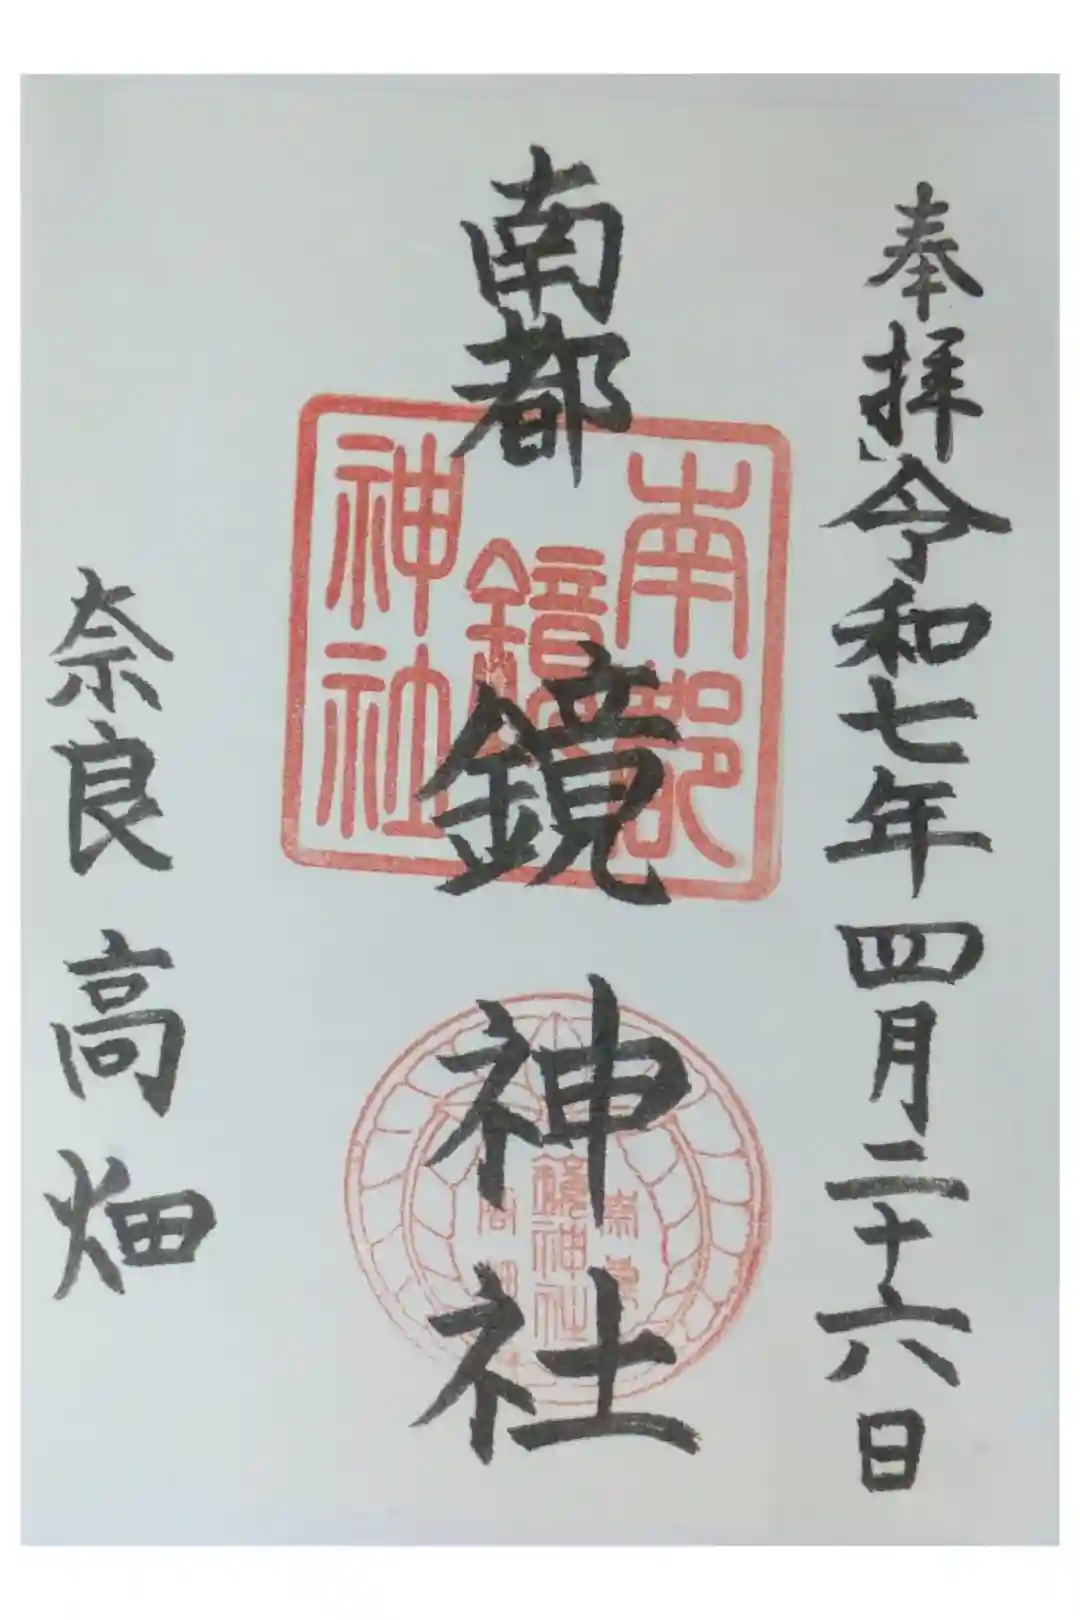 奉拝 令和七年四月二十六日
南都 鏡神社
奈良 高畑
南都
鏡
神社
鏡神社